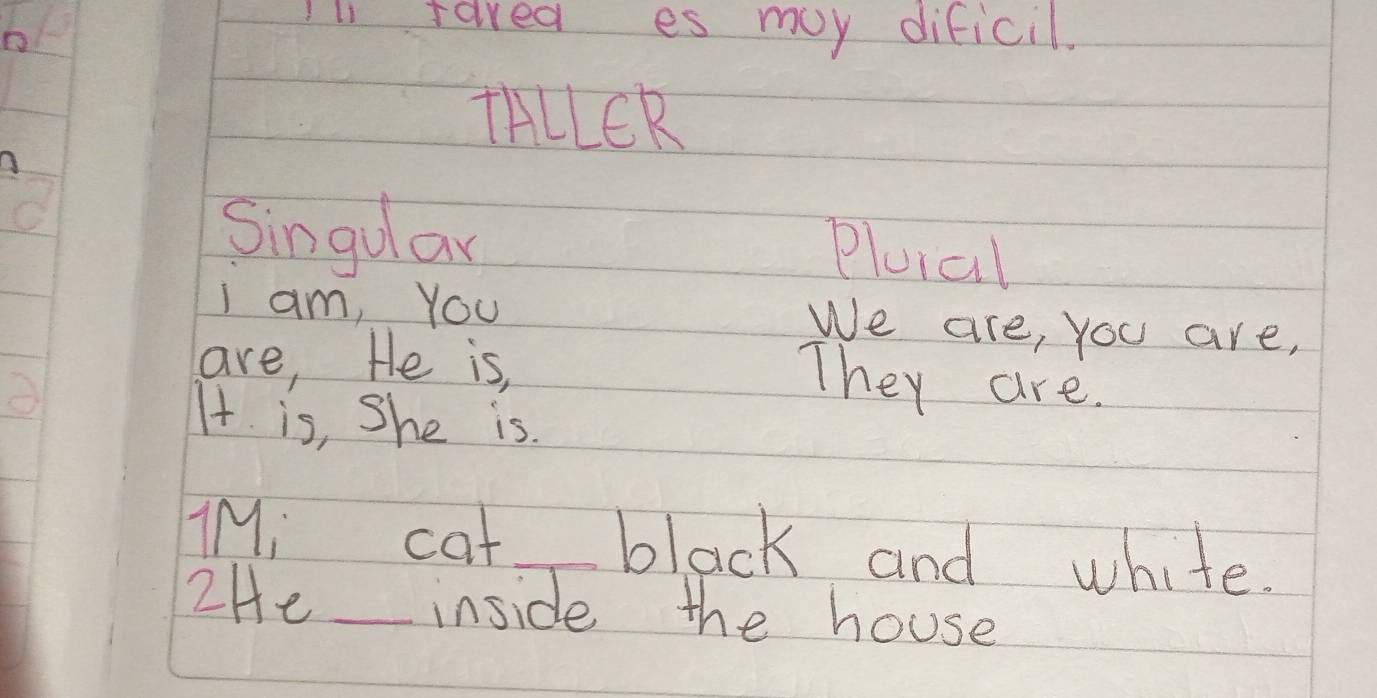 tarea es muy dificil.
TALLER
Singular Plural
i am, You We are, you are,
are, He is, They are.
It is, She is.
1 Mi cat __ black and white.
2 He __ inside the house